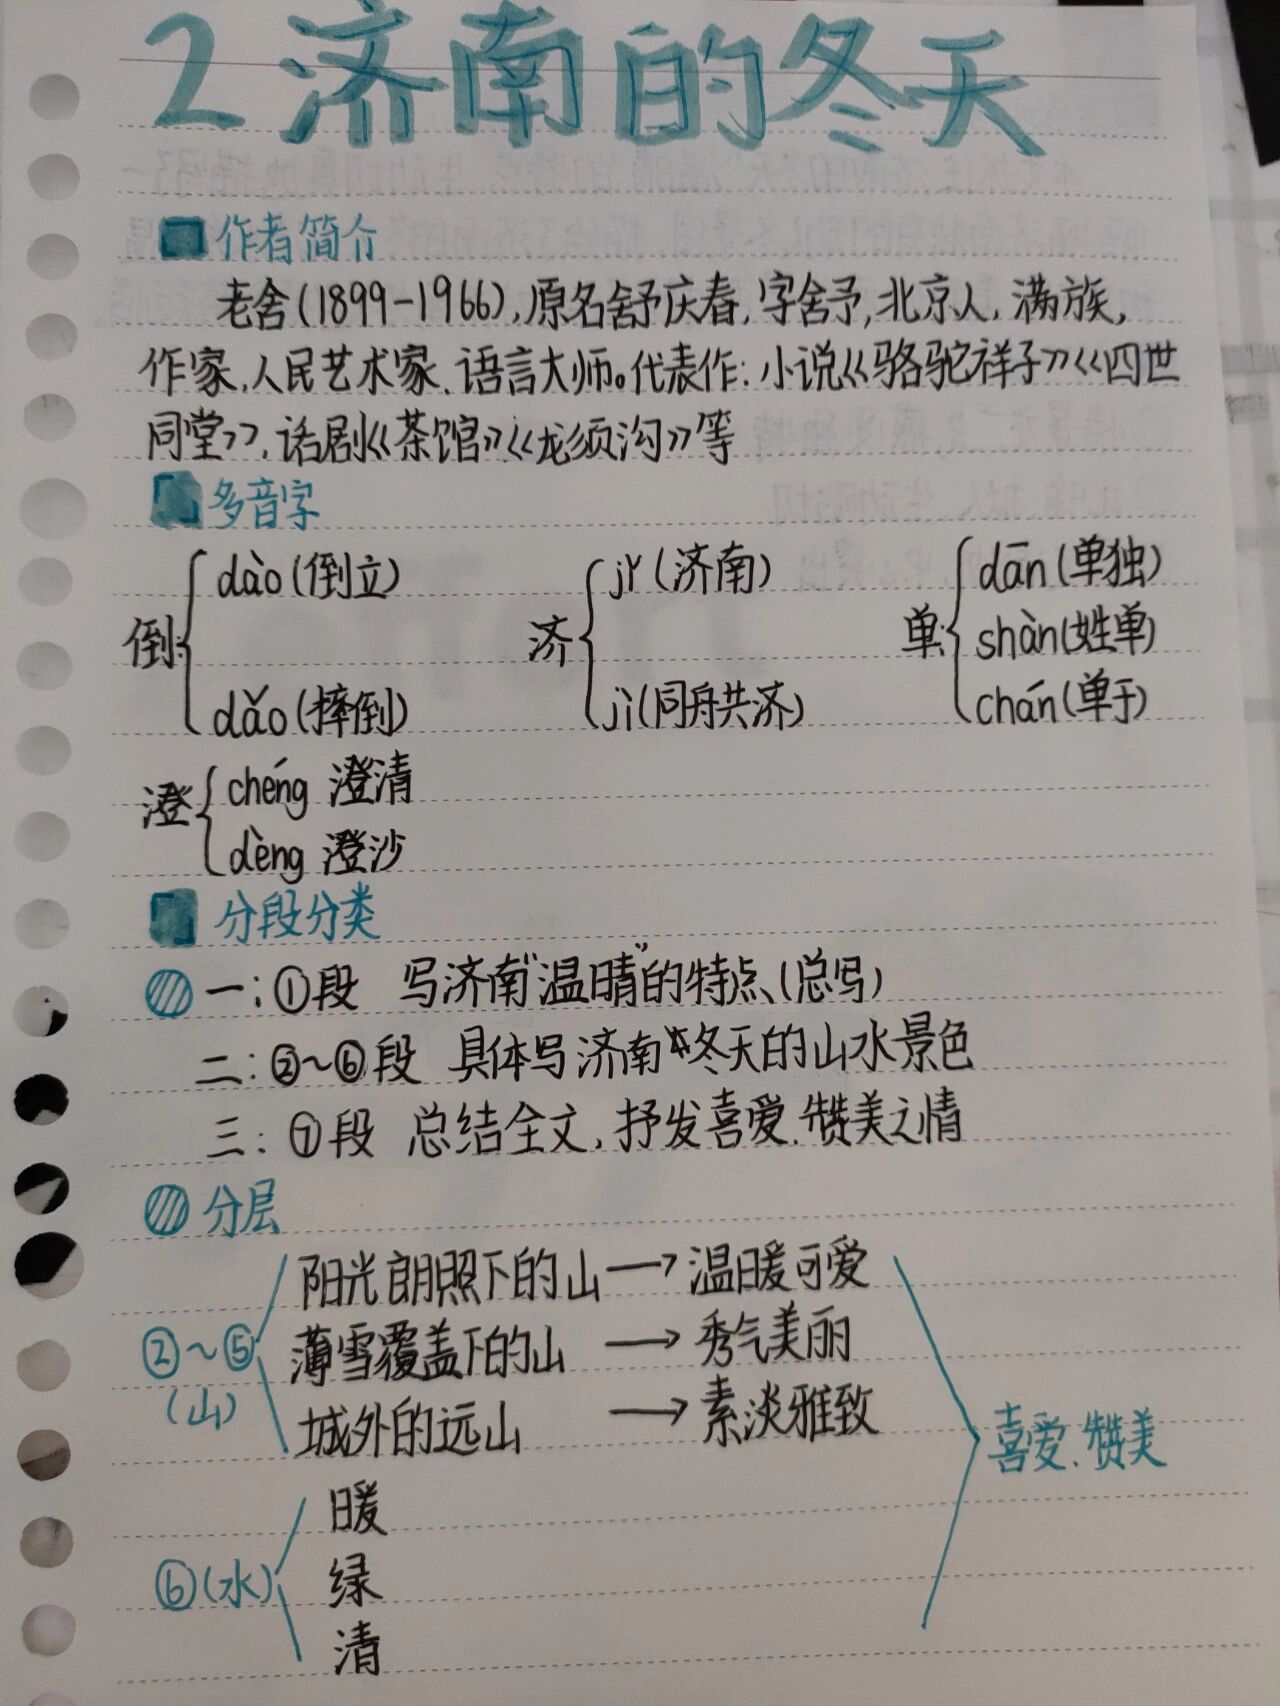 2 济南的冬天
作者简介
老舍(1899-1966),原名舒庆春,字舍予,北京人,满族,
作家、人民艺术家、语言大师。代表作:小说《骆驼祥子》《四世
同堂》,话剧《茶馆》《龙须沟》等
多音字
倒: dào(倒立) dǎo(摔倒)
济 jǐ(济南) jì(同舟共济)
单: dān(单独) shàn(姓单) chán(单于)
澄 chéng 澄清 dèng 澄沙
分段分类
一:①段 写济南“温晴”的特点(总写)
二:②~⑥段 具体写济南冬天的山水景色
三:⑦段 总结全文,抒发喜爱、赞美之情
分层
②~⑤(山)
阳光朗照下的山→温暖可爱
薄雪覆盖下的山→秀气美丽
城外的远山→素淡雅致
⑥(水)
暖
绿
清
喜爱、赞美